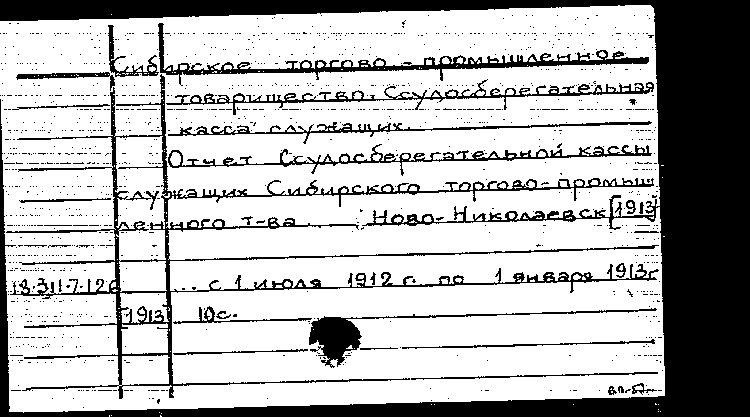 Сибирское торгово-промышленное
товарищество. Ссудосберегательная
касса служащих.
Отчет Ссудосберегательной кассы
служащих Сибирского торгово-промыш
ленного т-ва ... Ново-Николаевск [1913]
18.311.7.126 ... с 1 июля 1912 г. по 1 января 1913г
[1913] 10с.